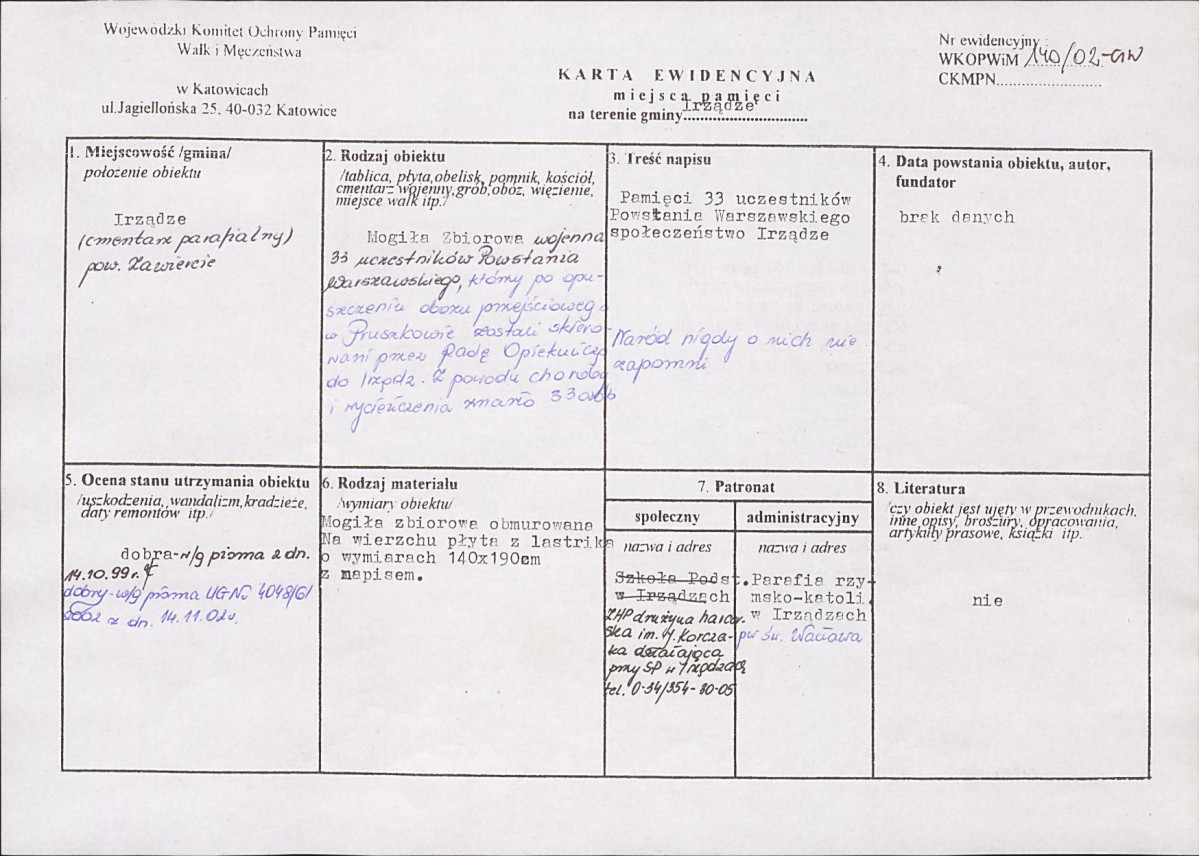 Wojewódzki Komitet Ochrony Pamięci
Walk i Męczeństwa
w Katowicach
ul.Jagiellońska 25, 40-032 Katowice
KARTA EWIDENCYJNA
miejsca pamięci
na terenie gminy Irządze
Nr ewidencyjny
WKOPWiM 140/02
CKMPN
1. Miejscowość /gmina/
położenie obiektu
Irządze
(cmentarz parafialny)
pow. Zawiercie
2. Rodzaj obiektu
/tablica, płyta,obelisk, pomnik, kościół,
cmentarz wojenny,grób,obóz, więzienie,
miejsce walk itp./
Mogiła Zbiorowa wojenna
33 uczestników Powstania
Warszawskiego, którzy po opu-
szczeniu obozu przejściowego
w Pruszkowie zostali skiero-
wani przez Radę Opiekuńczą
do Irządz. Z powodu choroby
i wycieńczenia zmarło 33 osób
3. Treść napisu
Pamięci 33 uczestników
Powstania Warszawskiego
społeczeństwo Irządze
Naród nigdy o nich nie
zapomni
4. Data powstania obiektu, autor,
fundator
brak danych
5. Ocena stanu utrzymania obiektu
/uszkodzenia, wandalizm,kradzieże,
daty remontów itp./
dobra-w/g pisma z dn.
14.10.99 r.
dobry-w/g pisma UG Nr 4048/6/
2002 z dn. 14.11.02r.
6. Rodzaj materiału
/wymiary obiektu/
Mogiła zbiorowa obmurowana
Na wierzchu płyta z lastrika
o wymiarach 140x190cm
z napisem.
7. Patronat
społeczny
nazwa i adres
Szkoła Podst.
w Irządzach
ZHP drużyna harcer.
ska im. J. Korcza-
ka działająca
przy SP w Irządzach
tel. 0-34/354-80-05
administracyjny
nazwa i adres
Parafia rzy-
msko-katoli.
w Irządzach
pw św. Wacława
8. Literatura
/czy obiekt jest ujęty w przewodnikach,
inne opisy, broszury, opracowania,
artykuły prasowe, książki itp.
nie